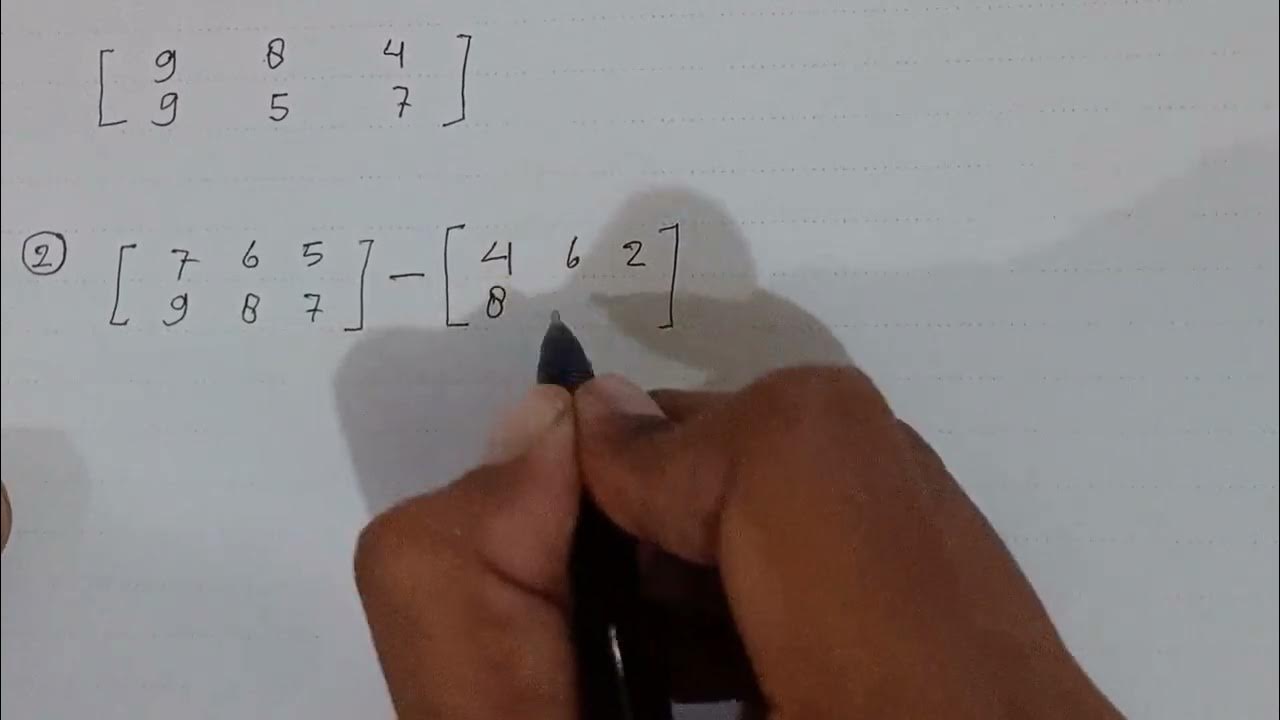 [ 9 8 4
9 5 7 ]
② [ 7 6 5
9 8 7 ] - [ 4 6 2
8 ]